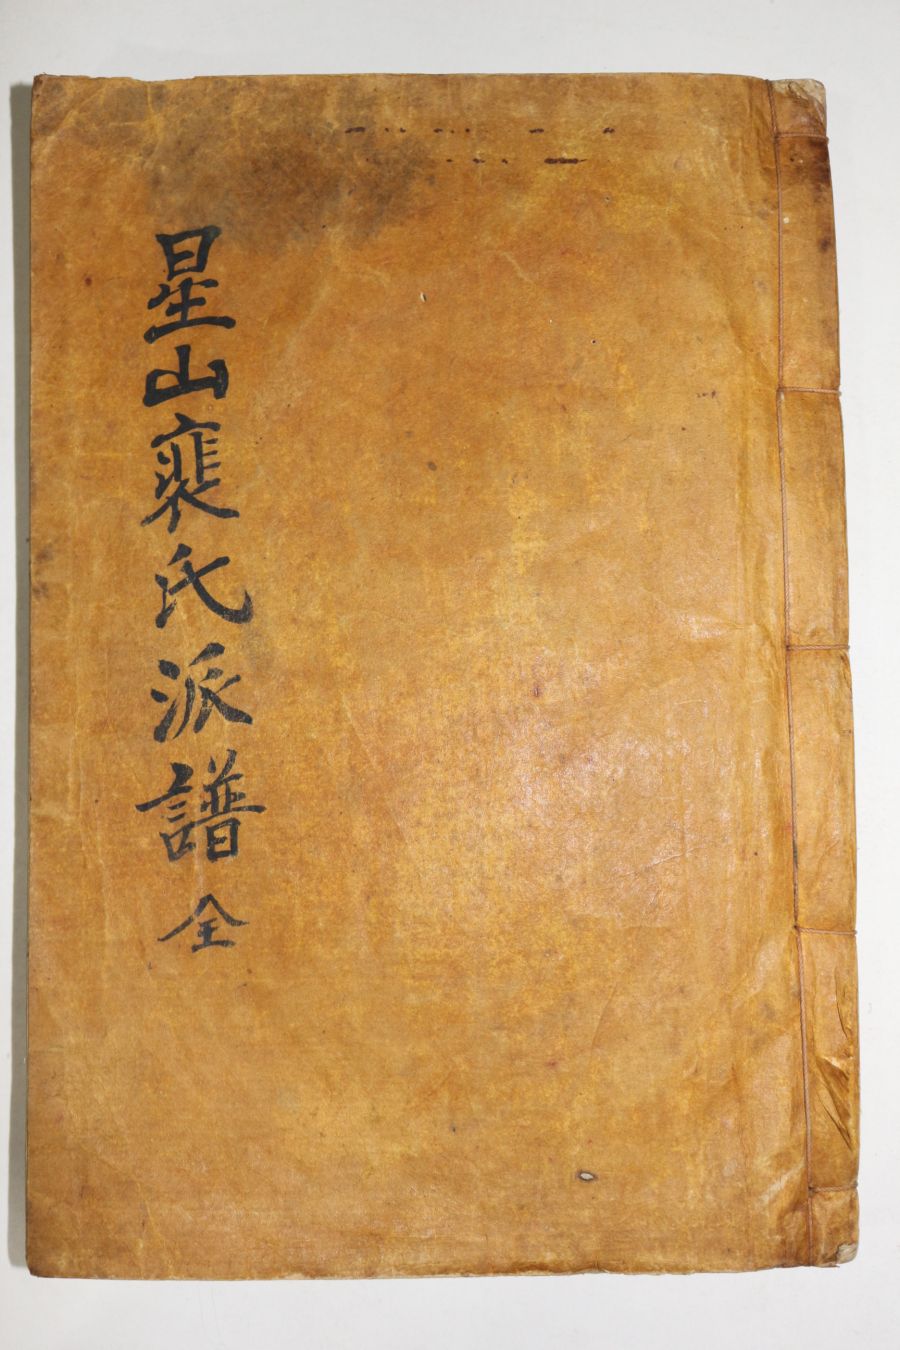 星山裵氏派譜 全